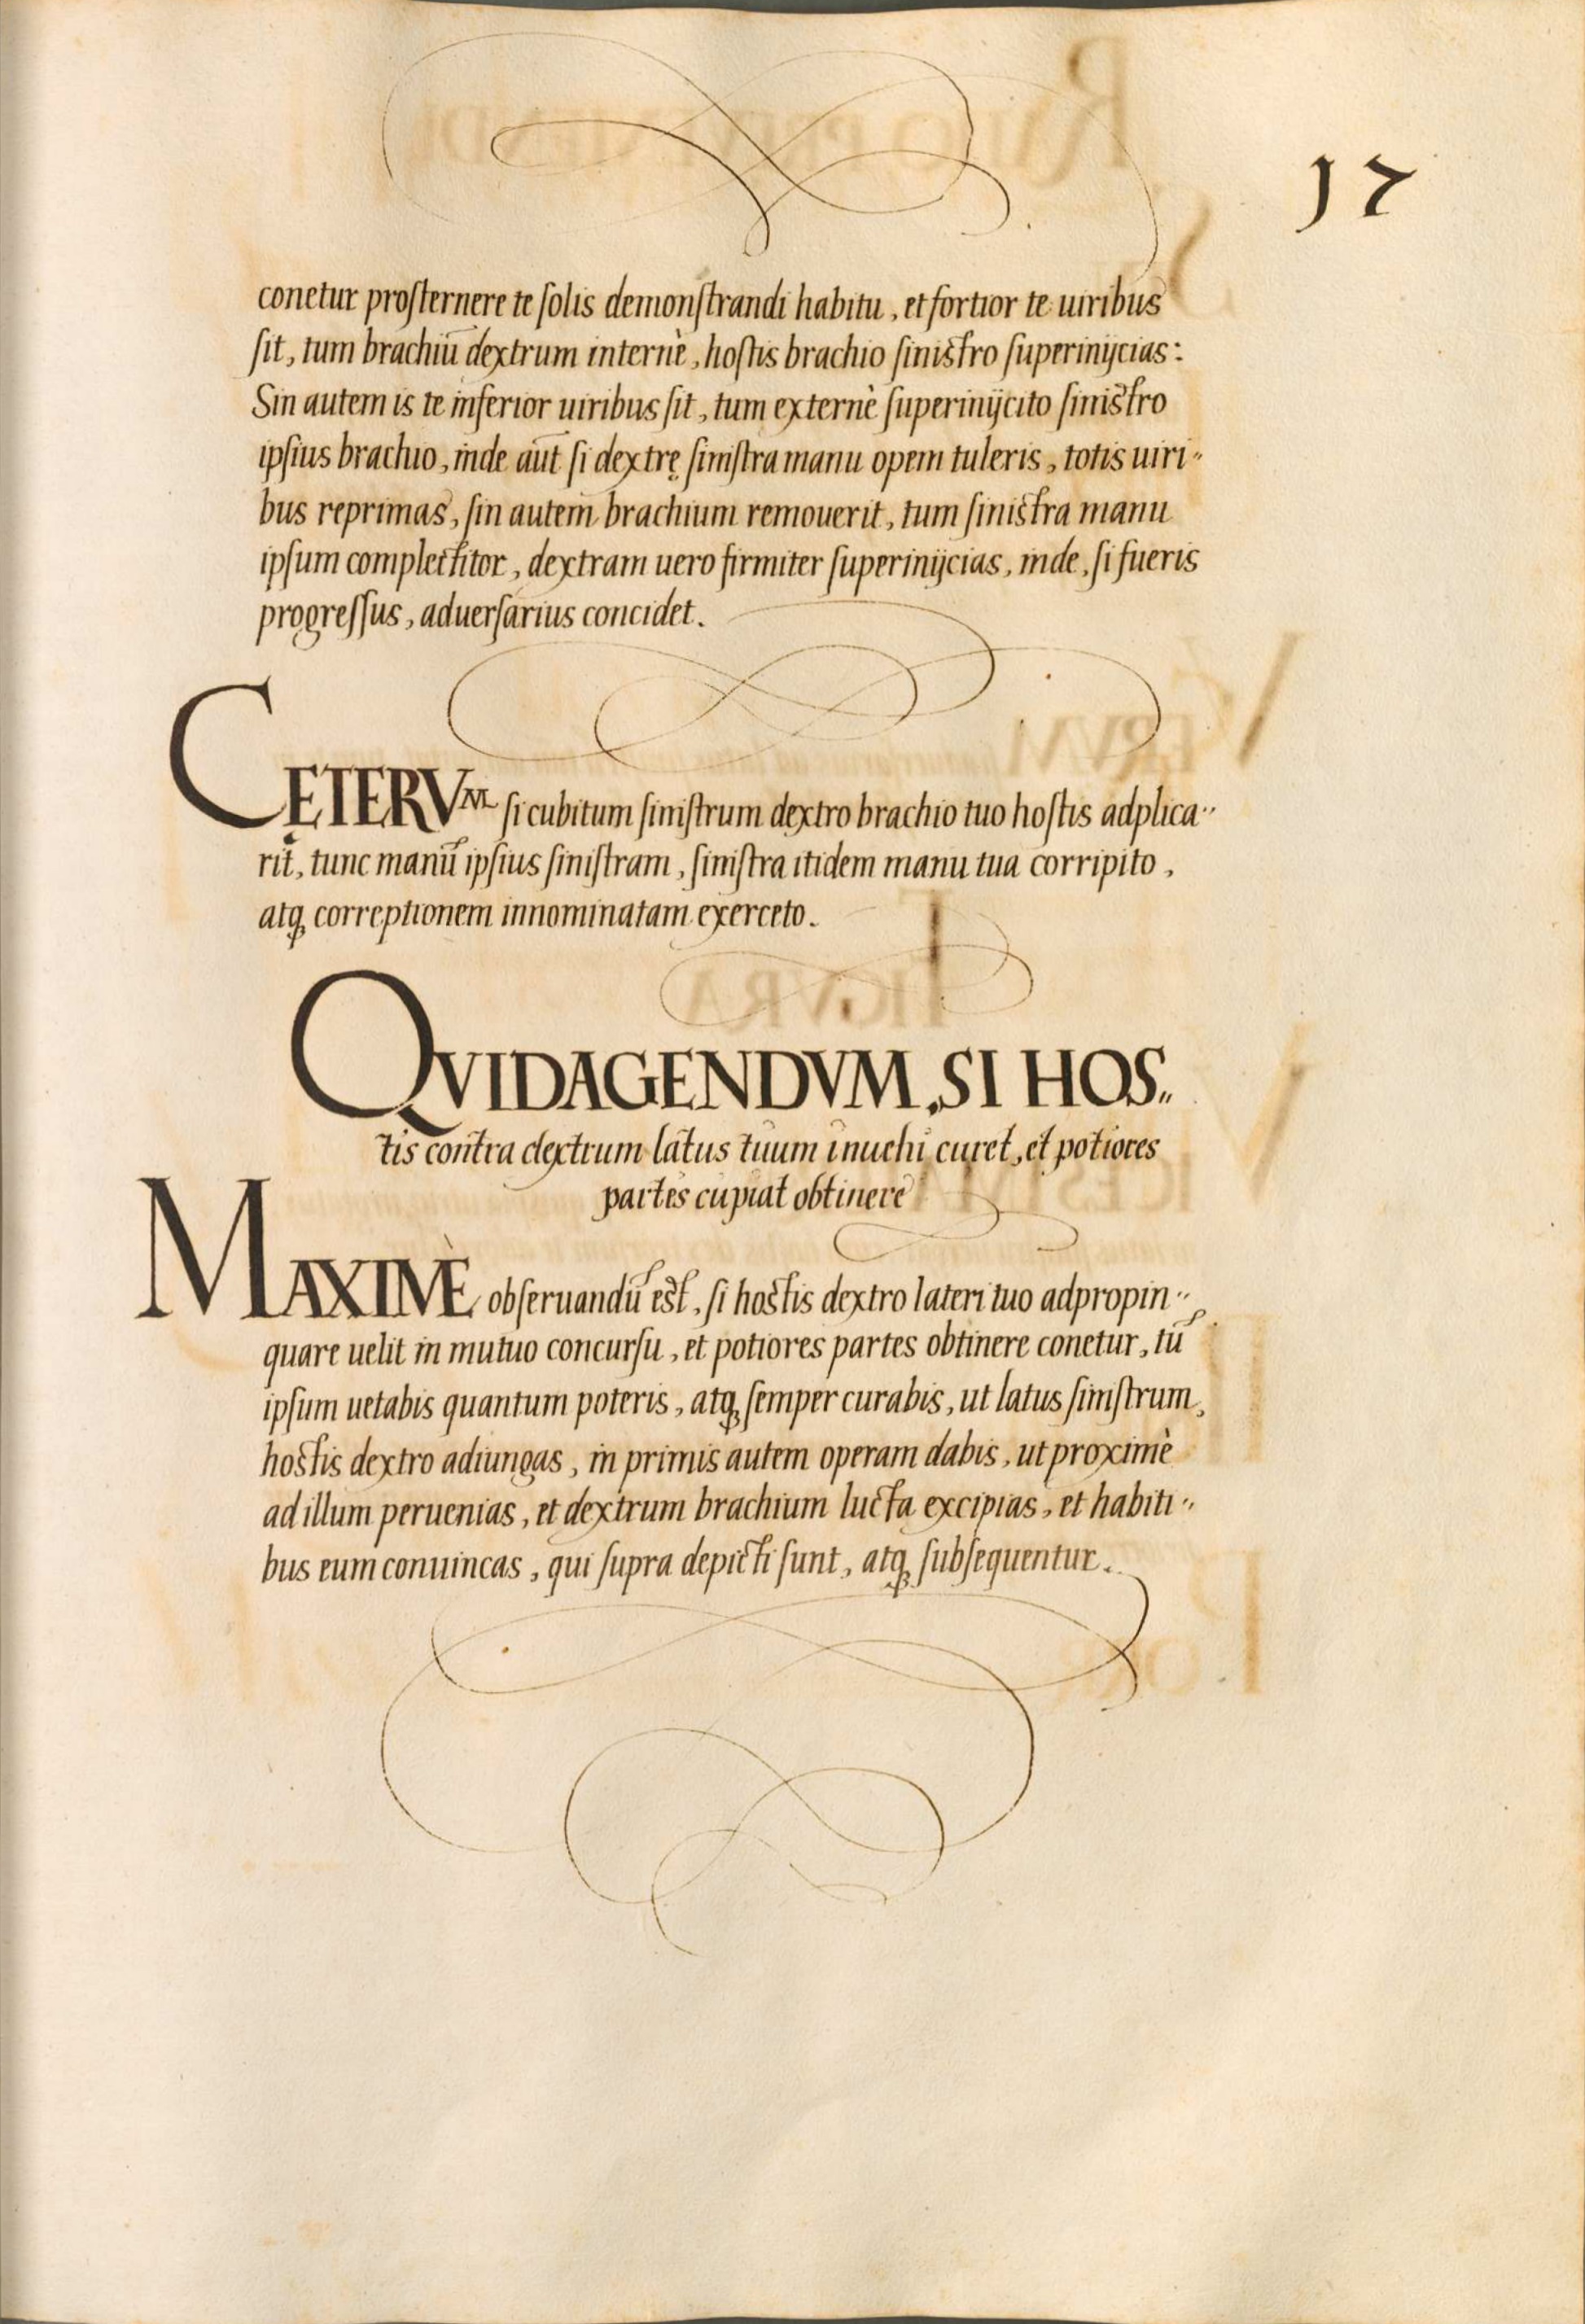 17
conetur proſternere te ſolis demonſtrandi habitu, et fortior te uiribus
ſit, tum brachiū dextrum internè, hoſtis brachio ſiniſtro ſuperinijcias:
Sin autem is te inferior uiribus ſit, tum externè ſuperinijcito ſiniſtro
ipſius brachio, inde aūt ſi dextrę ſiniſtra manu opem tuleris, totis uiri-
bus reprimas, ſin autem brachium remouerit, tum ſiniſtra manu
ipſum complectitor, dextram uero firmiter ſuperinijcias, inde, ſi fueris
progreſſus, aduerſarius concidet.
CĘTERVM ſi cubitum ſiniſtrum dextro brachio tuo hoſtis adplica-
rit, tunc manū ipſius ſiniſtram, ſiniſtra itidem manu tua corripito,
atq; correptionem innominatam exerceto.
QVID AGENDVM, SI HOS-
tis contra dextrum latus tuum inuehi curet, et potiores
partes cupiat obtinere
MAXIMÈ obſeruandū eſt, ſi hoſtis dextro lateri tuo adpropin-
quare uelit in mutuo concurſu, et potiores partes obtinere conetur, tū
ipſum uetabis quantum poteris, atq; ſemper curabis, ut latus ſiniſtrum,
hoſtis dextro adiungas, in primis autem operam dabis, ut proximè
ad illum peruenias, et dextrum brachium lucta excipias, et habiti-
bus eum conuincas, qui ſupra depicti ſunt, atq; ſubſequentur.